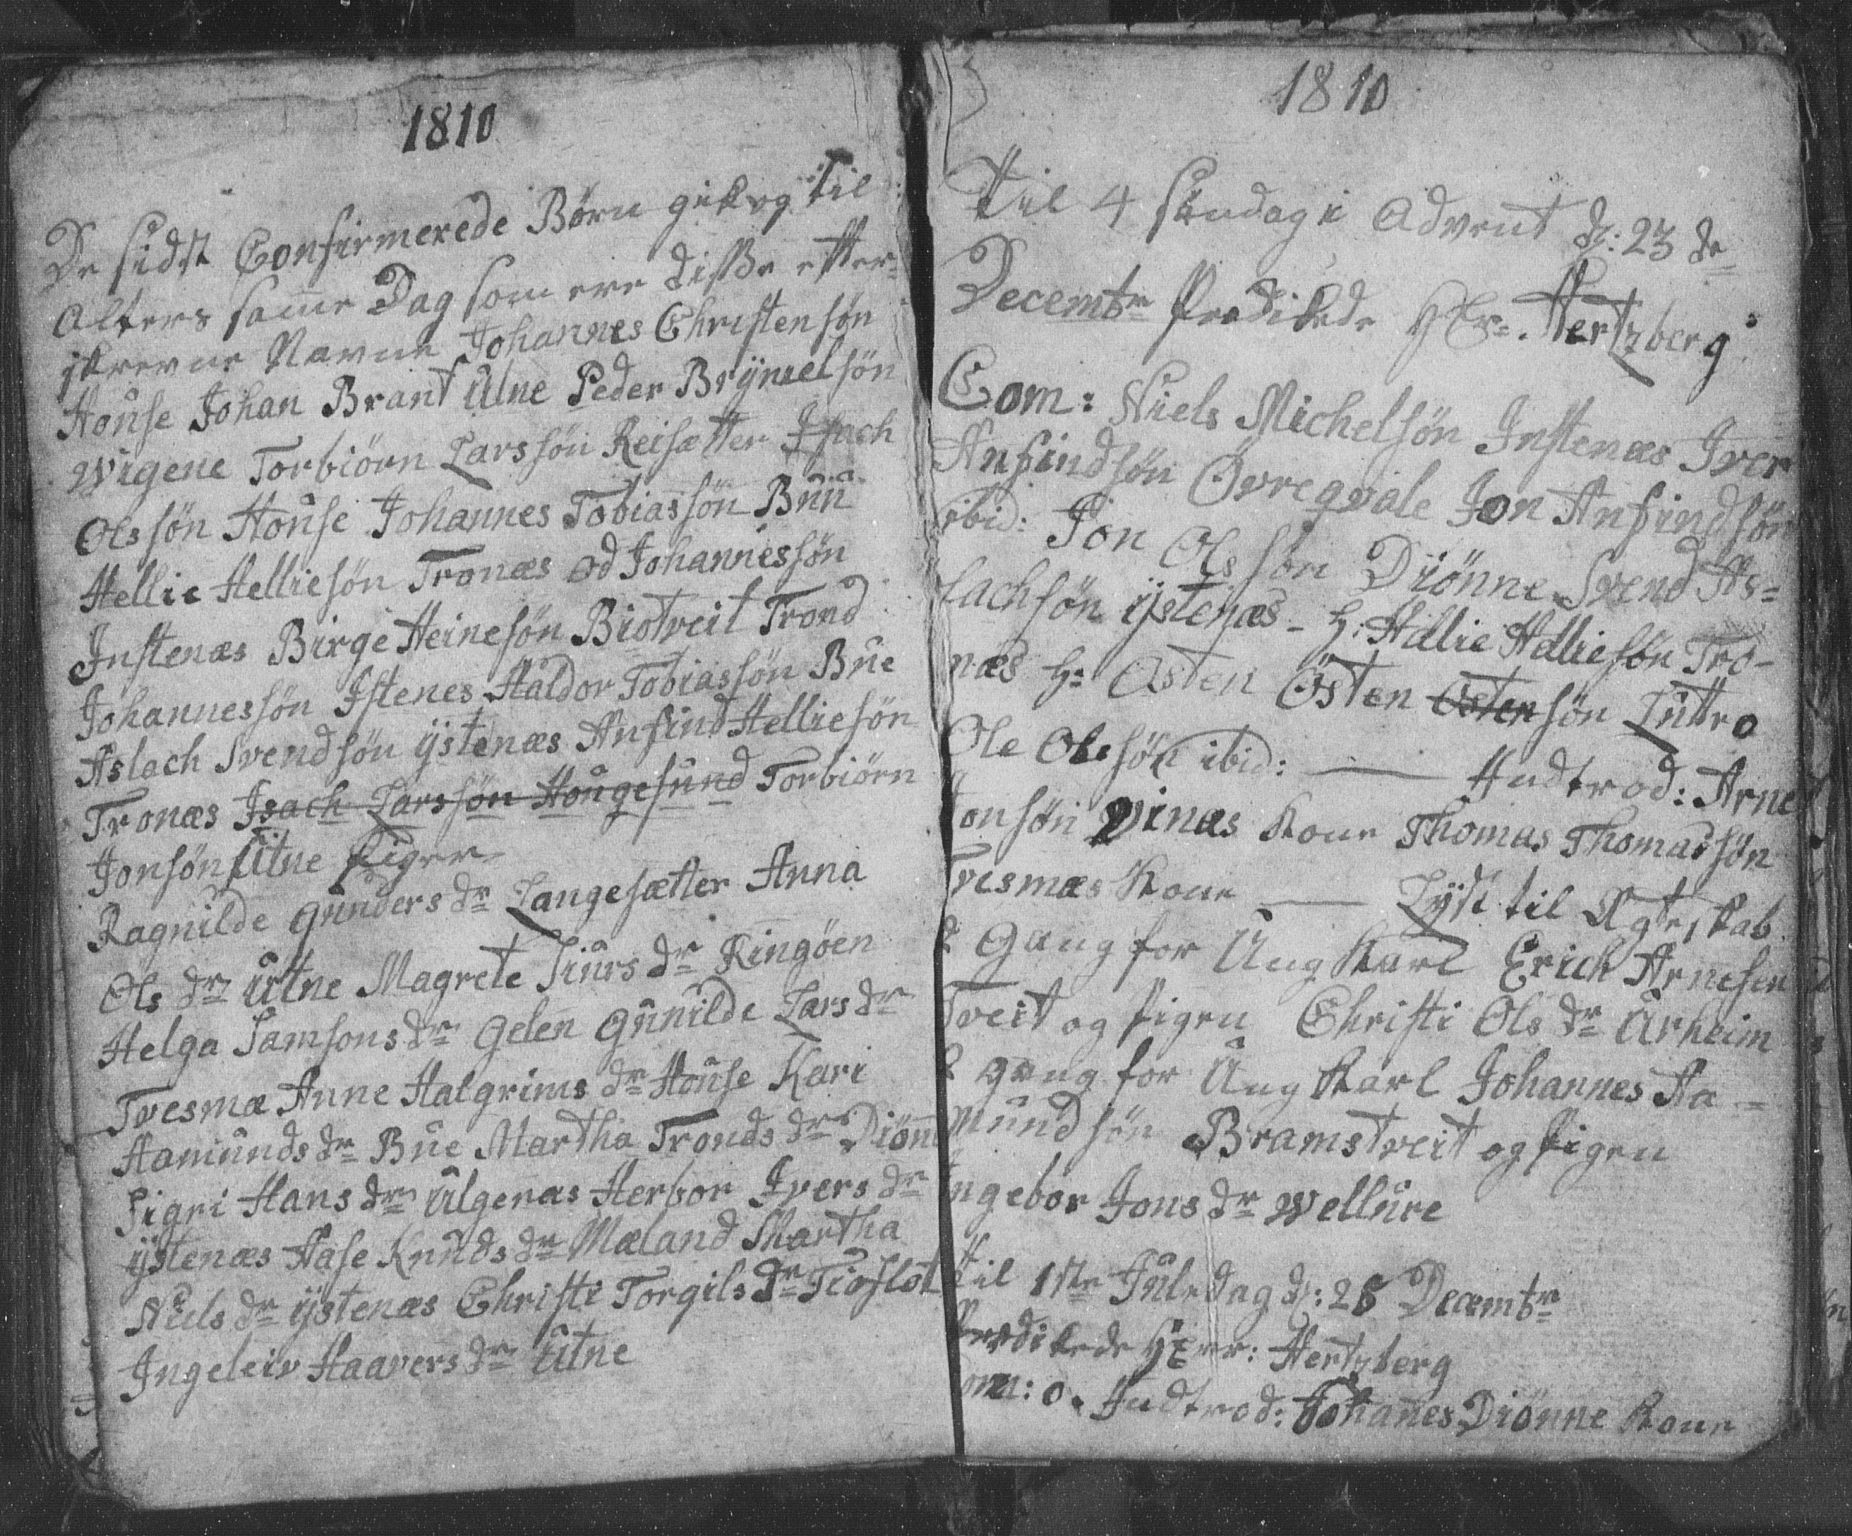 1810
De sidst Confirmerede Børn gik og til
Alters samme Dag som ere disse efter-
skrevne Navne Johannes Christensøn
House Johan Brant Utne Peder Brynielsøn
Wigene Torbiørn Larssøn Reisætter Isach
Olssøn House Johannes Tobiassøn Buu
Hellie Helliesøn Tronæs Od Johannessøn
Instenæs Birge Heinesøn Biotveit Trond
Johannessøn Istenes Haldor Tobiassøn Bue
Aslach Svendsøn ystenæs Anfind Helliesøn
Tronæs Isach Larssøn Hougesund Torbiørn
Jonsøn Utne Piger
Ragnilde Gunders dr Langesætter Anna
Ols dr Utne Magrete Siurs dr Ringøen
Helga Samsons dr Gelen Gunilde Lars dr
Tvesmæ Anne Halgrims dr House Kari
Aamunds dr Bue Martha Tronds dr Diønne
Sigri Hans dr Ulgenæs Herbor Ivers dr
ystenæs Aase Knuds dr Mæland Martha
Niels dr ystenæs Christi Torgils dr Tioflot
Ingeleiv Haavers dr Utne
1810
Til 4 Søndag i Advent d: 23 de
Decembr Predikede H Hr. Hertzberg
Com: Niels Michelsøn Instenæs Iver
Anfindsøn Øvreqvale Jon Anfindsøn
ibid: Jon Olssøn Diønne Svend As=
lachsøn ystenæs - H: Hellie Helliesøn Tro-
næs H: Østen Østen Østensøn Luttro
Ole Olessøn ibid: — Indtrod: Arne
Jonsøn Vinæs Kone Thomas Thomassøn
Tvesmæs Kone — Lyst til Ægteskab
2 Gang for Ung Karl Erich Arnesen
Tveit og Pigen Christi Ols dr Urheim
2 gang for Ung Karl Johannes Aa-
mundsøn Bramstveit og Pigen
Ingebor Jons dr Wellure
Til 1ste Juledag d: 25 Decembr
Predikede H Herr: Hertzberg
Com: 0. Indtrod: Johannes Diønne Kone